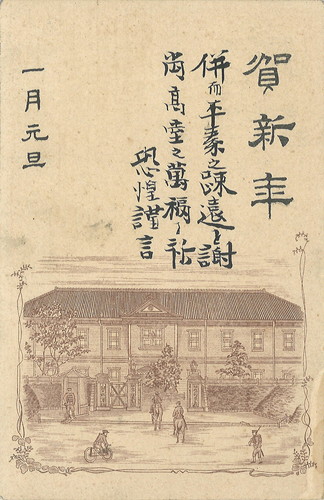 賀新年
併而平素之疎遠ヲ謝
尚高堂之萬福ヲ祈
恐惶謹言
一月元旦